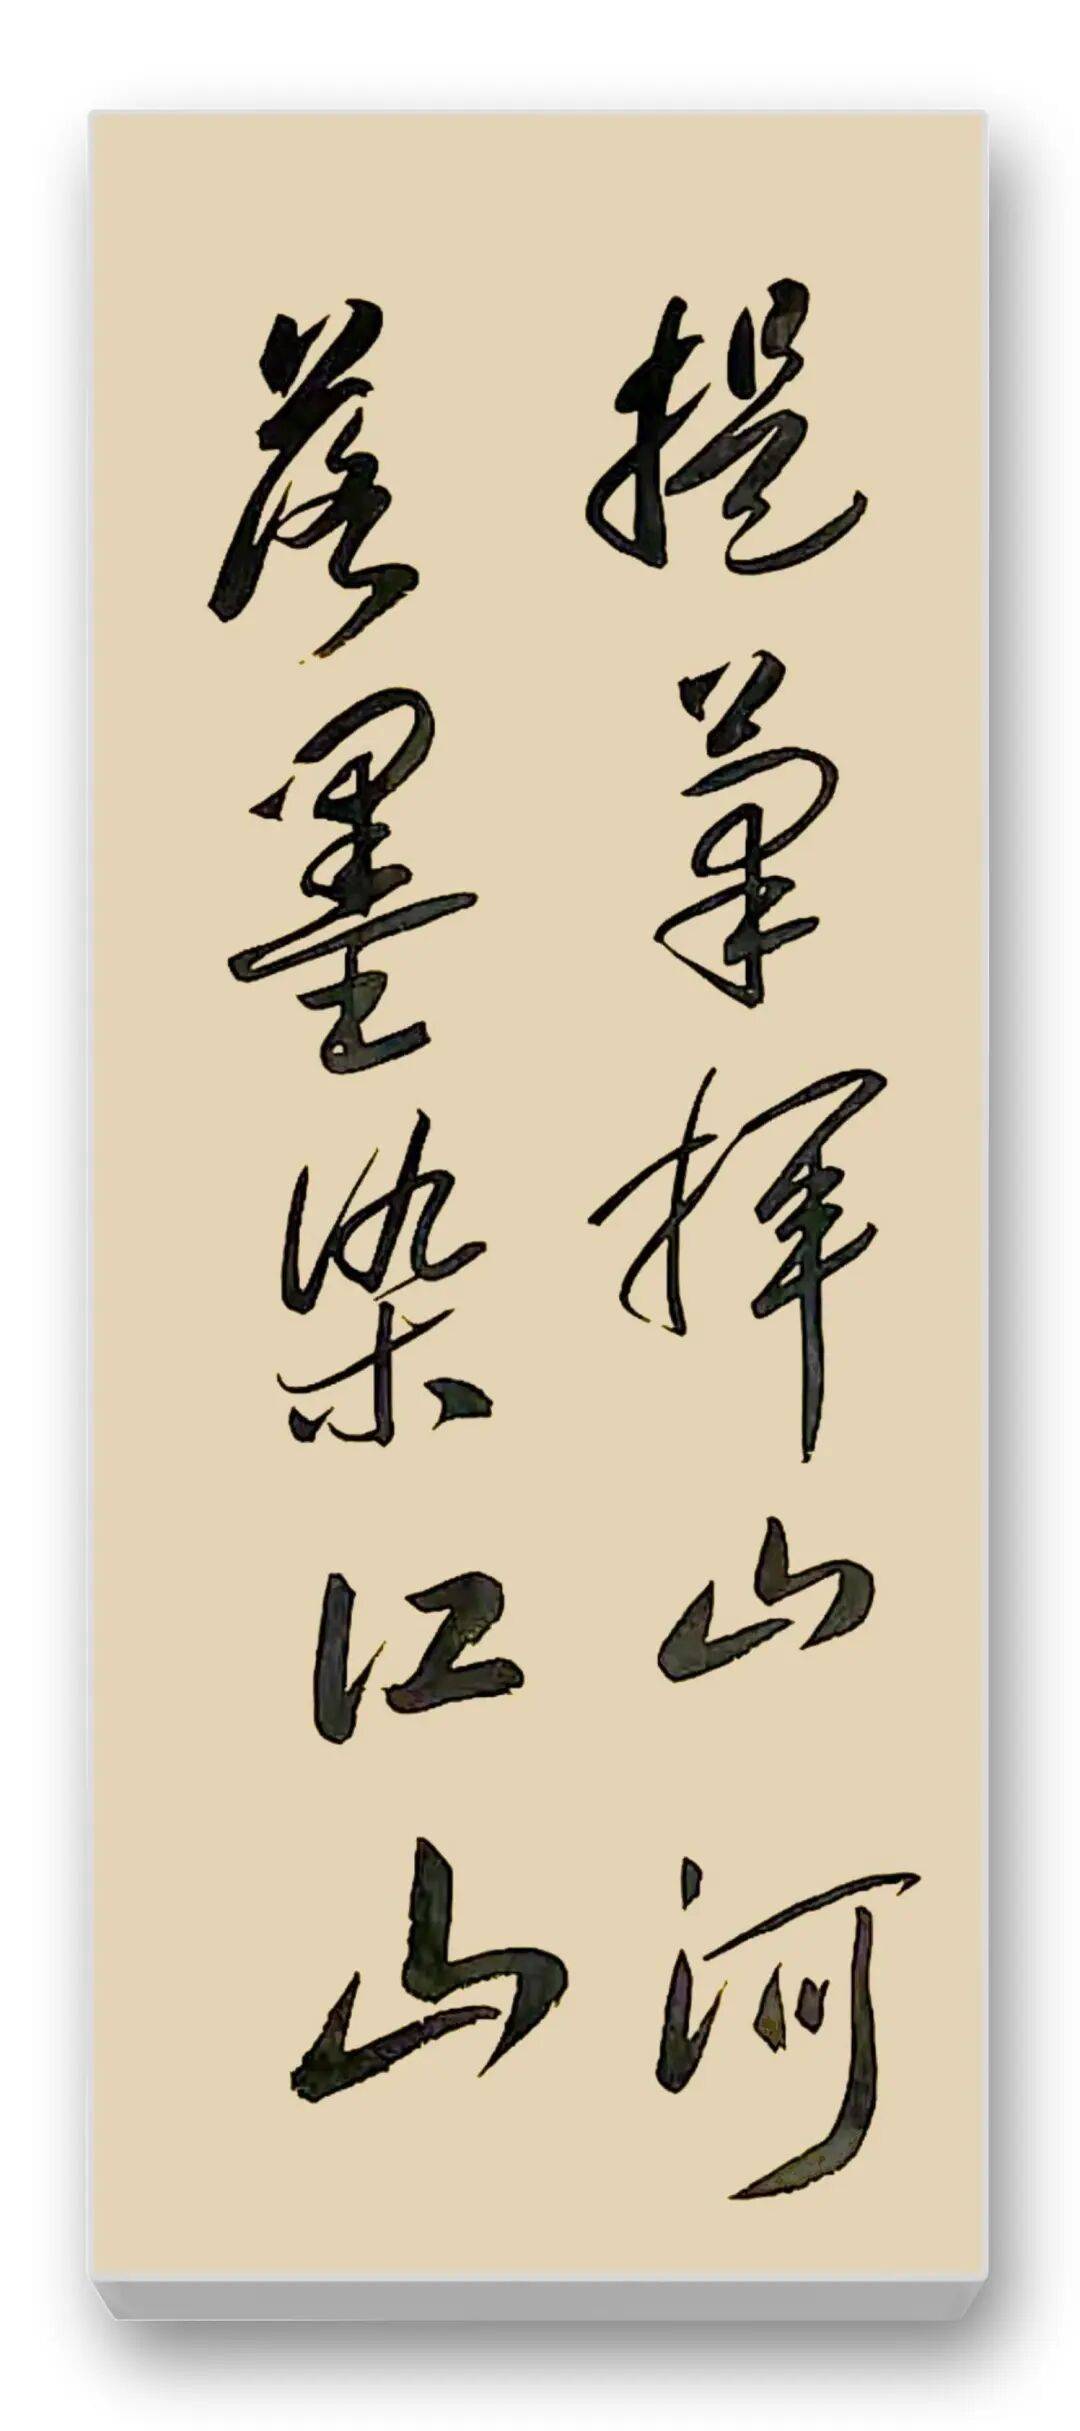 提笔挥山河
落墨染江山